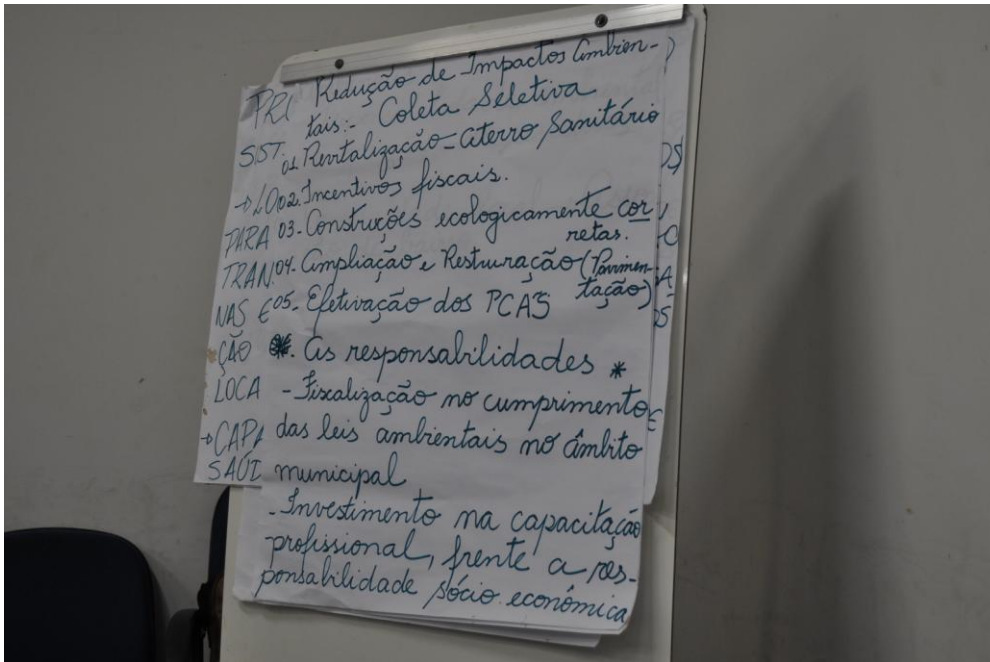 Redução de Impactos Ambien-
tais:- Coleta Seletiva
01. Revitalização - Aterro Sanitário
02. Incentivos fiscais.
03 - Construções ecologicamente cor
retas.
04 - Ampliação e Restruração (Pavimen-
tação)
05 - Efetivação dos PCAS
As responsabilidades *
- Fiscalização no cumprimento
das leis ambientais no âmbito
municipal
- Investimento na capacitação
profissional, frente a res-
ponsabilidade sócio econômica
PRI
SIST.
→ LO
PARA
TRAN
NAS E
ÇÃO
LOCA
→ CAPA
SAÚD